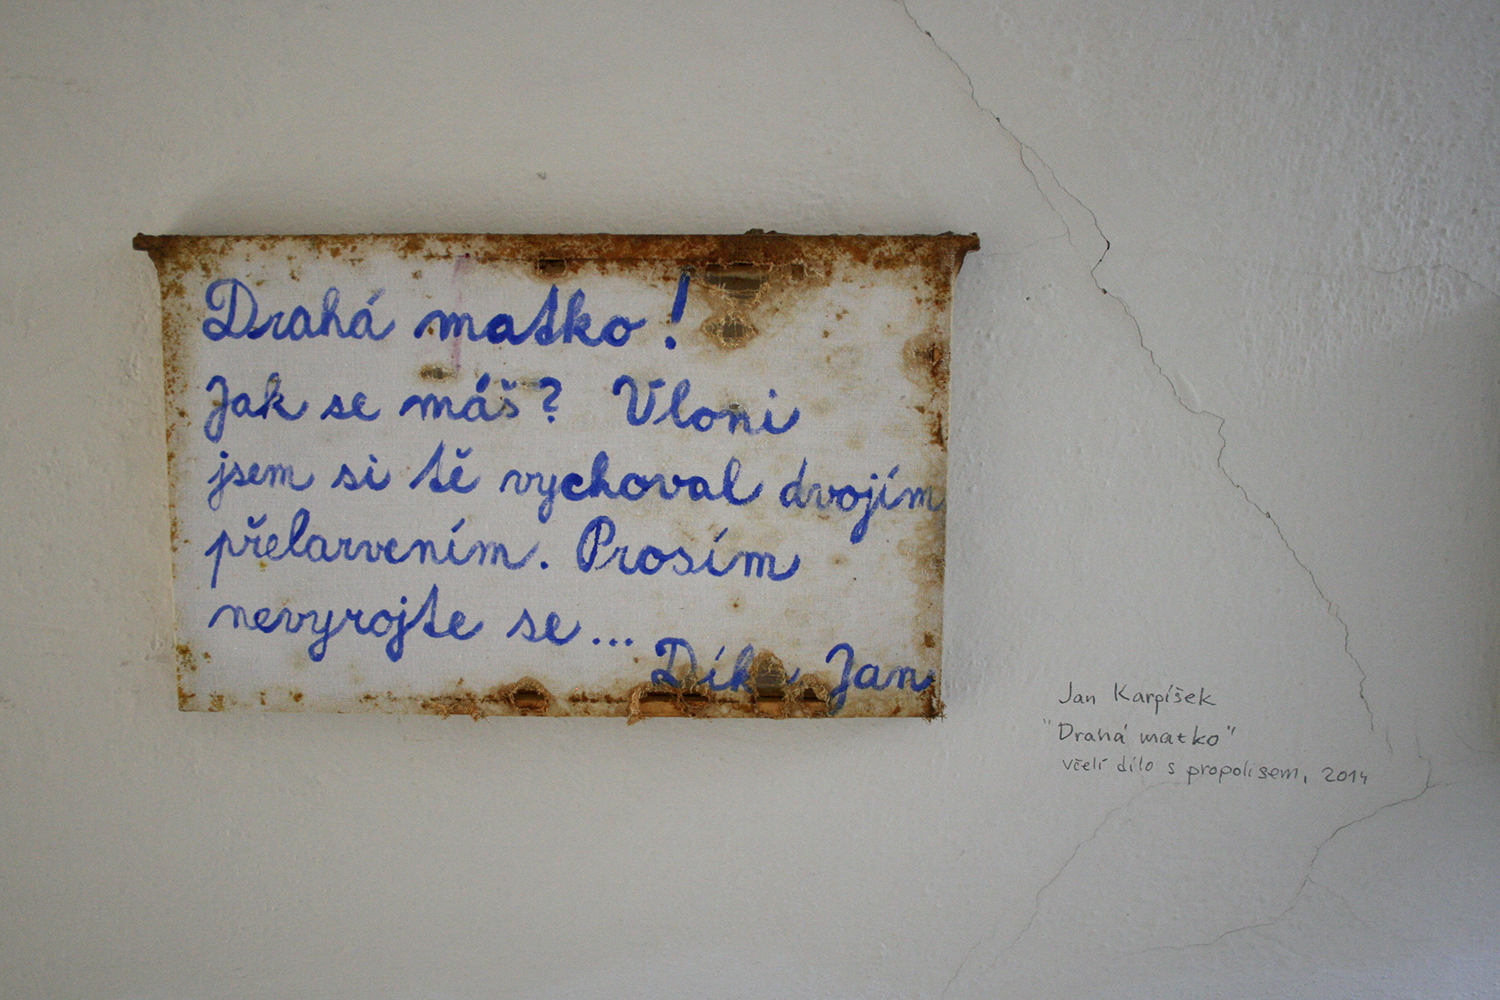 Drahá matko!
Jak se máš? Vloni
jsem si tě vychoval dvojím
přelarvením. Prosím
nevyrojte se...
Díky Jan
Jan Karpíšek
"Drahá matko"
včelí dílo s propolisem, 2014